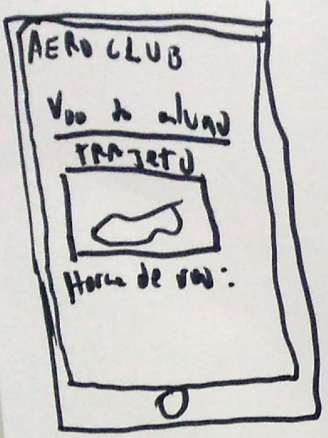 AERO CLUB
Voo do aluno
TRAJETO
Horas de voo: